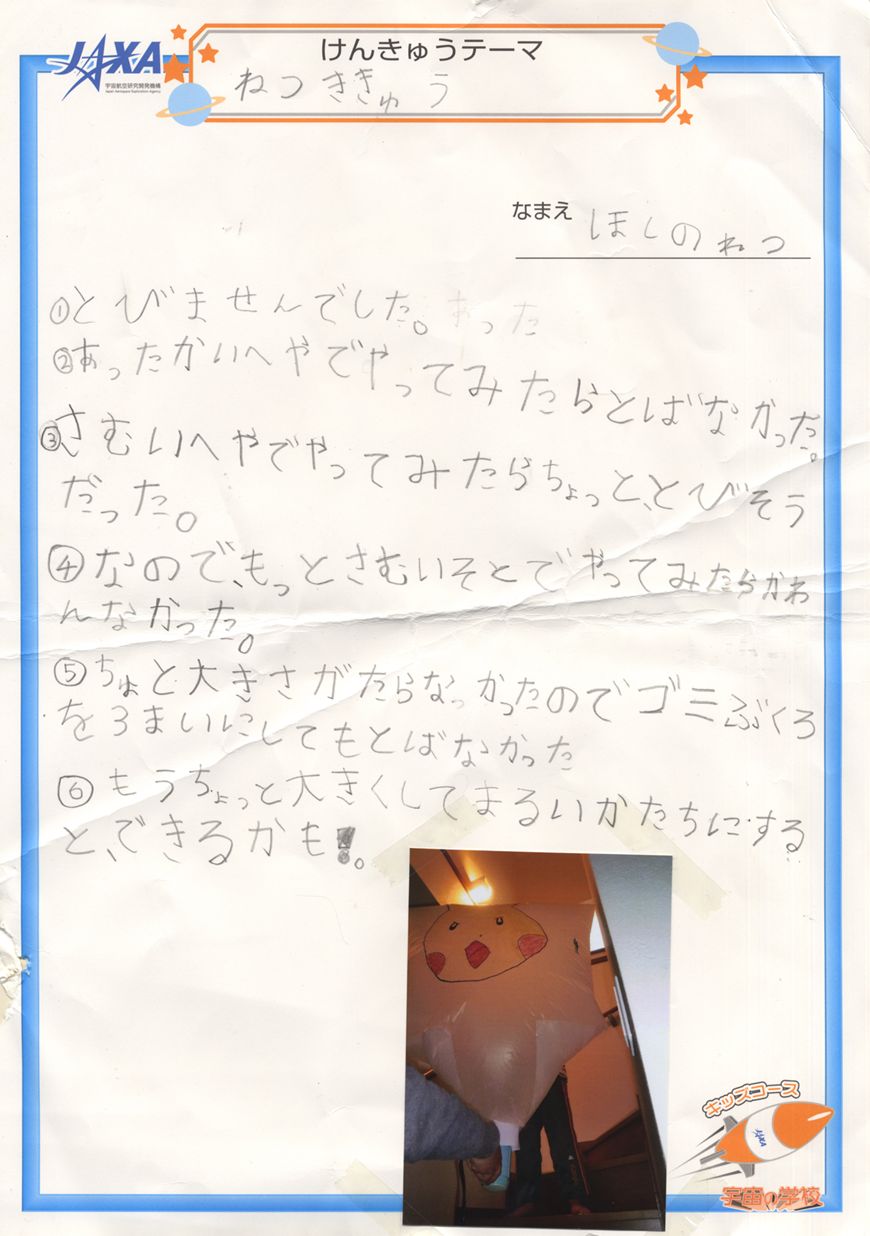 JAXA
宇宙航空研究開発機構
Japan Aerospace Exploration Agency
けんきゅうテーマ
ねつききゅう
なまえ ほしのねつ
①とびませんでした。あった
②あったかいへやでやってみたらとばなかった。
③さむいへやでやってみたらちょっと、とびそう
だった。
④なので、もっとさむいそとでやってみたらかわ
んなかった。
⑤ちょと大きさがたらなっかったのでゴミぶくろ
を3まいにしてもとばなかった
⑥もうちょっと大きくしてまるいかたちにする
と、できるかも!。
キッズコース
JAXA
宇宙の学校